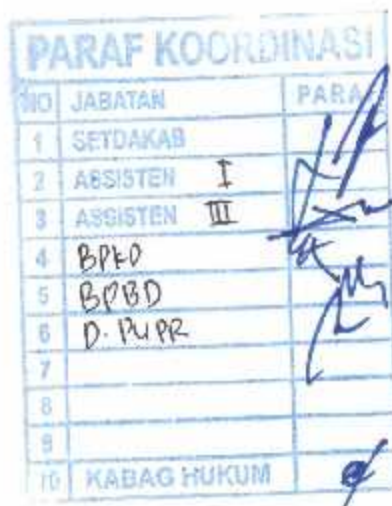 PARAF KOORDINASI
NO JABATAN PARA
1 SETDAKAB
2 ASSISTEN I
3 ASSISTEN III
4 BPKD
5 BPBD
6 D. PUPR
7
8
9
10 KABAG HUKUM